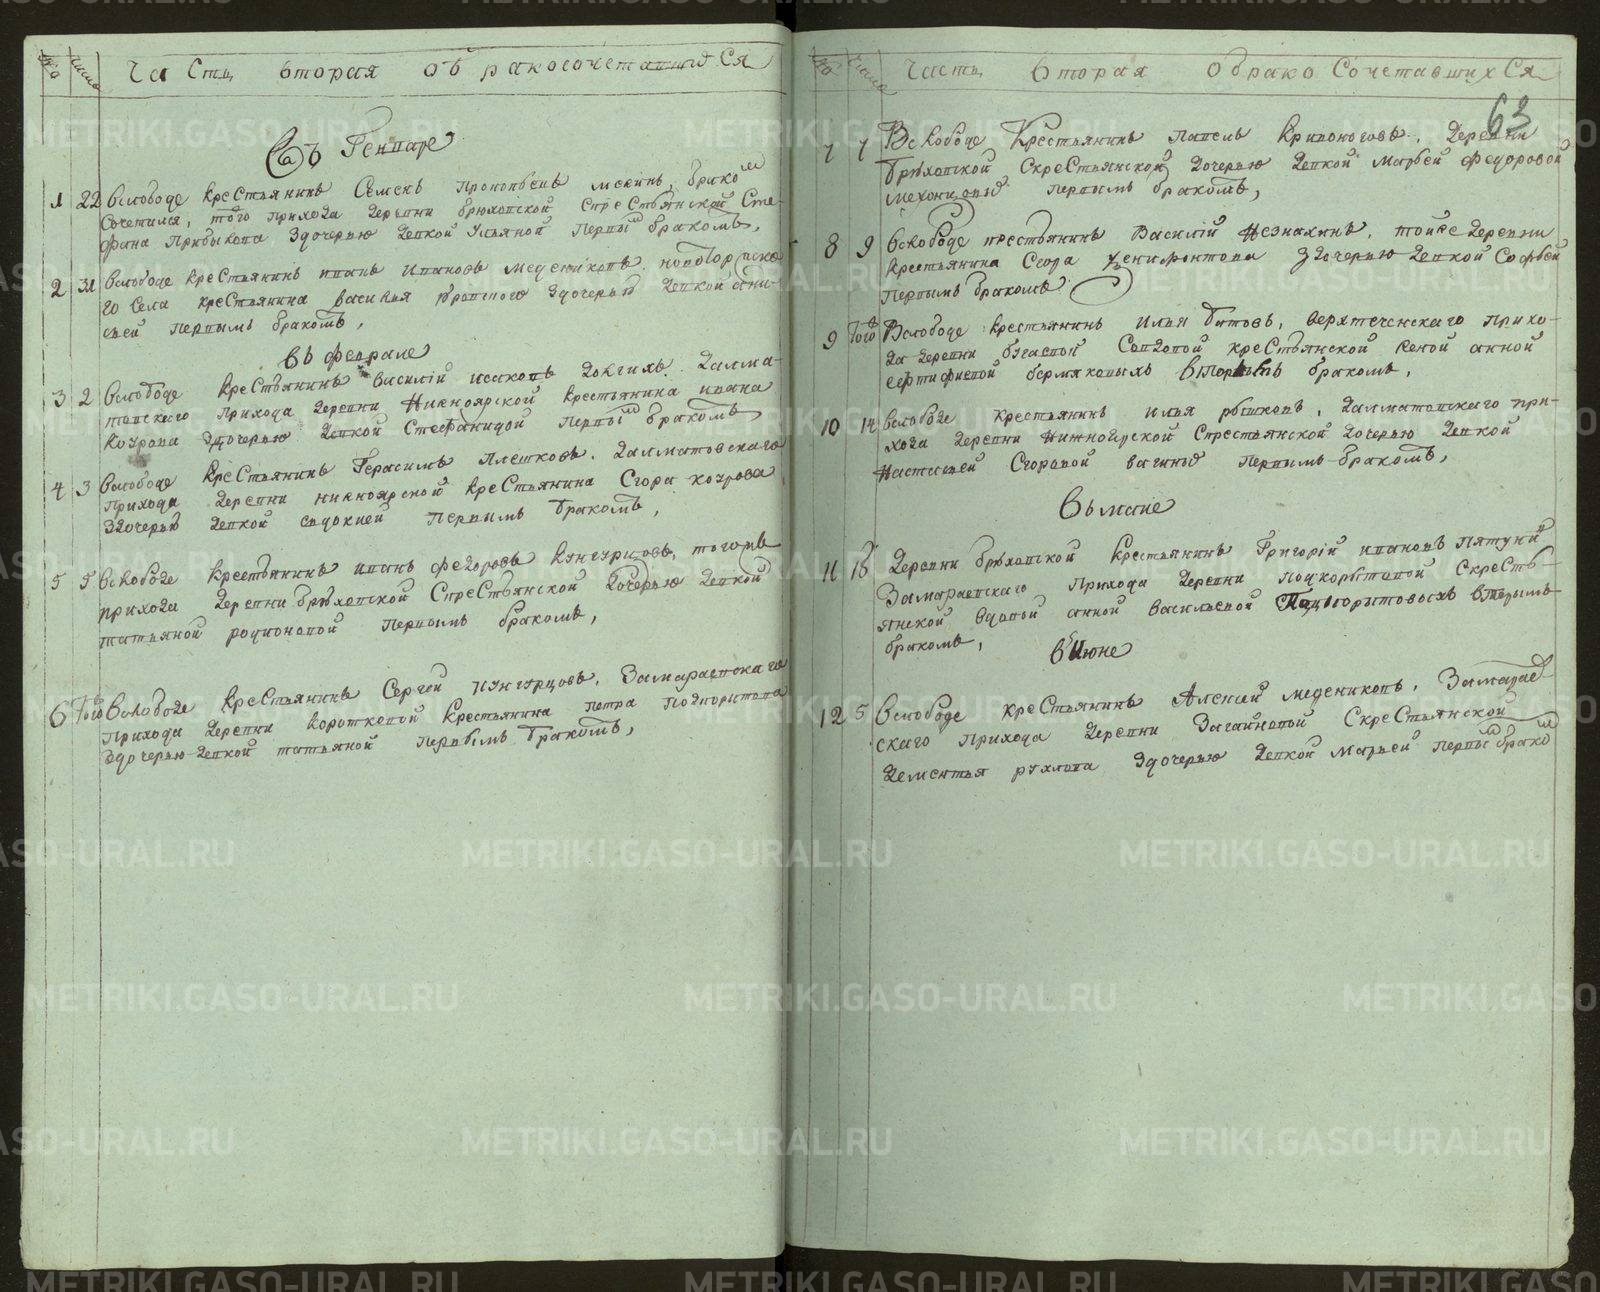 №
число
Часть вторая обракосочетавшихся
Въ Генваре
1 22 вслободе крестьянинъ Семенъ Прокопьевъ мскинъ, бракомъ
сочетался, того прихода деревни брюховской скрестьянской Сте-
фана Прибыкова здочерью девкой Ульяной первымъ бракомъ,
2 31 вслободе крестьянинъ иванъ Ивановъ медениковъ новоторжска
го села крестьянина василья здочерью девкой ани-
сьей первымъ бракомъ,
въ феврале
3 2 вслободе крестьянинъ василій исаковъ Долгихъ Далма-
товскаго прихода деревни Нижноярской крестьянина ивана
козрова здочерью девкой Стефанидой первымъ бракомъ,
4 3 вслободе крестьянинъ Герасимъ Плешковъ. далматовскаго
прихода деревни нижноярской крестьянина Егора козрова
здочерью девкой евдокией первымъ бракомъ,
5 5 вслободе крестьянинъ иванъ федоровъ кунгурцовъ, тогожъ
прихода деревни брюховской Скрестьянской дочерью девкой
татьяной родионовой первымъ бракомъ,
6 Того вслободе крестьянинъ Сергей кунгурцовъ, Замараевскаго
прихода деревни коротковой крестьянина петра подкорытова
здочерью девкой татьяной первымъ бракомъ,
№
число
Часть вторая обракосочетавшихся
63
7 7 Вслободе Крестьянинъ павелъ кривоноговъ. деревни
брюховской скрестьянской дочерью девкой марьей федоровой
мехонцовыхъ первымъ бракомъ,
8 9 вслободе крестьянинъ Василій Незнахинъ, тойже деревни
крестьянина Егора ксенифонтова здочерью девкой Софьей
первымъ бракомъ
9 Того Вслободе крестьянинъ илья битовъ, верхтеченскаго прихо-
да деревни бугаевой Свдовой крестьянской женой анной
ефтифиевой бермяковыхъ вторымъ бракомъ,
10 14 вслободе крестьянинъ илья рышковъ, далматовскаго при-
хода деревни нижноярской Скрестьянской дочерью девкой
Настасьей Егоровой вагиныхъ первымъ бракомъ,
въ мaие
11 18 деревни брюховской крестьянинъ Григорій ивановъ пятунинъ
Замараевскаго прихода деревни подкорытовой Скресть-
янской вдовой анной васильевой Подкорытовыхъ вторымъ
бракомъ,
в Июне
12 5 вслободе крестьянинъ Алексей медениковъ, Замарaев-
скаго прихода деревни Загайновой Скрестьянской
дементья рухлова здочерью девкой марьей первымъ бракомъ
METRIKI.GASO-URAL.RU